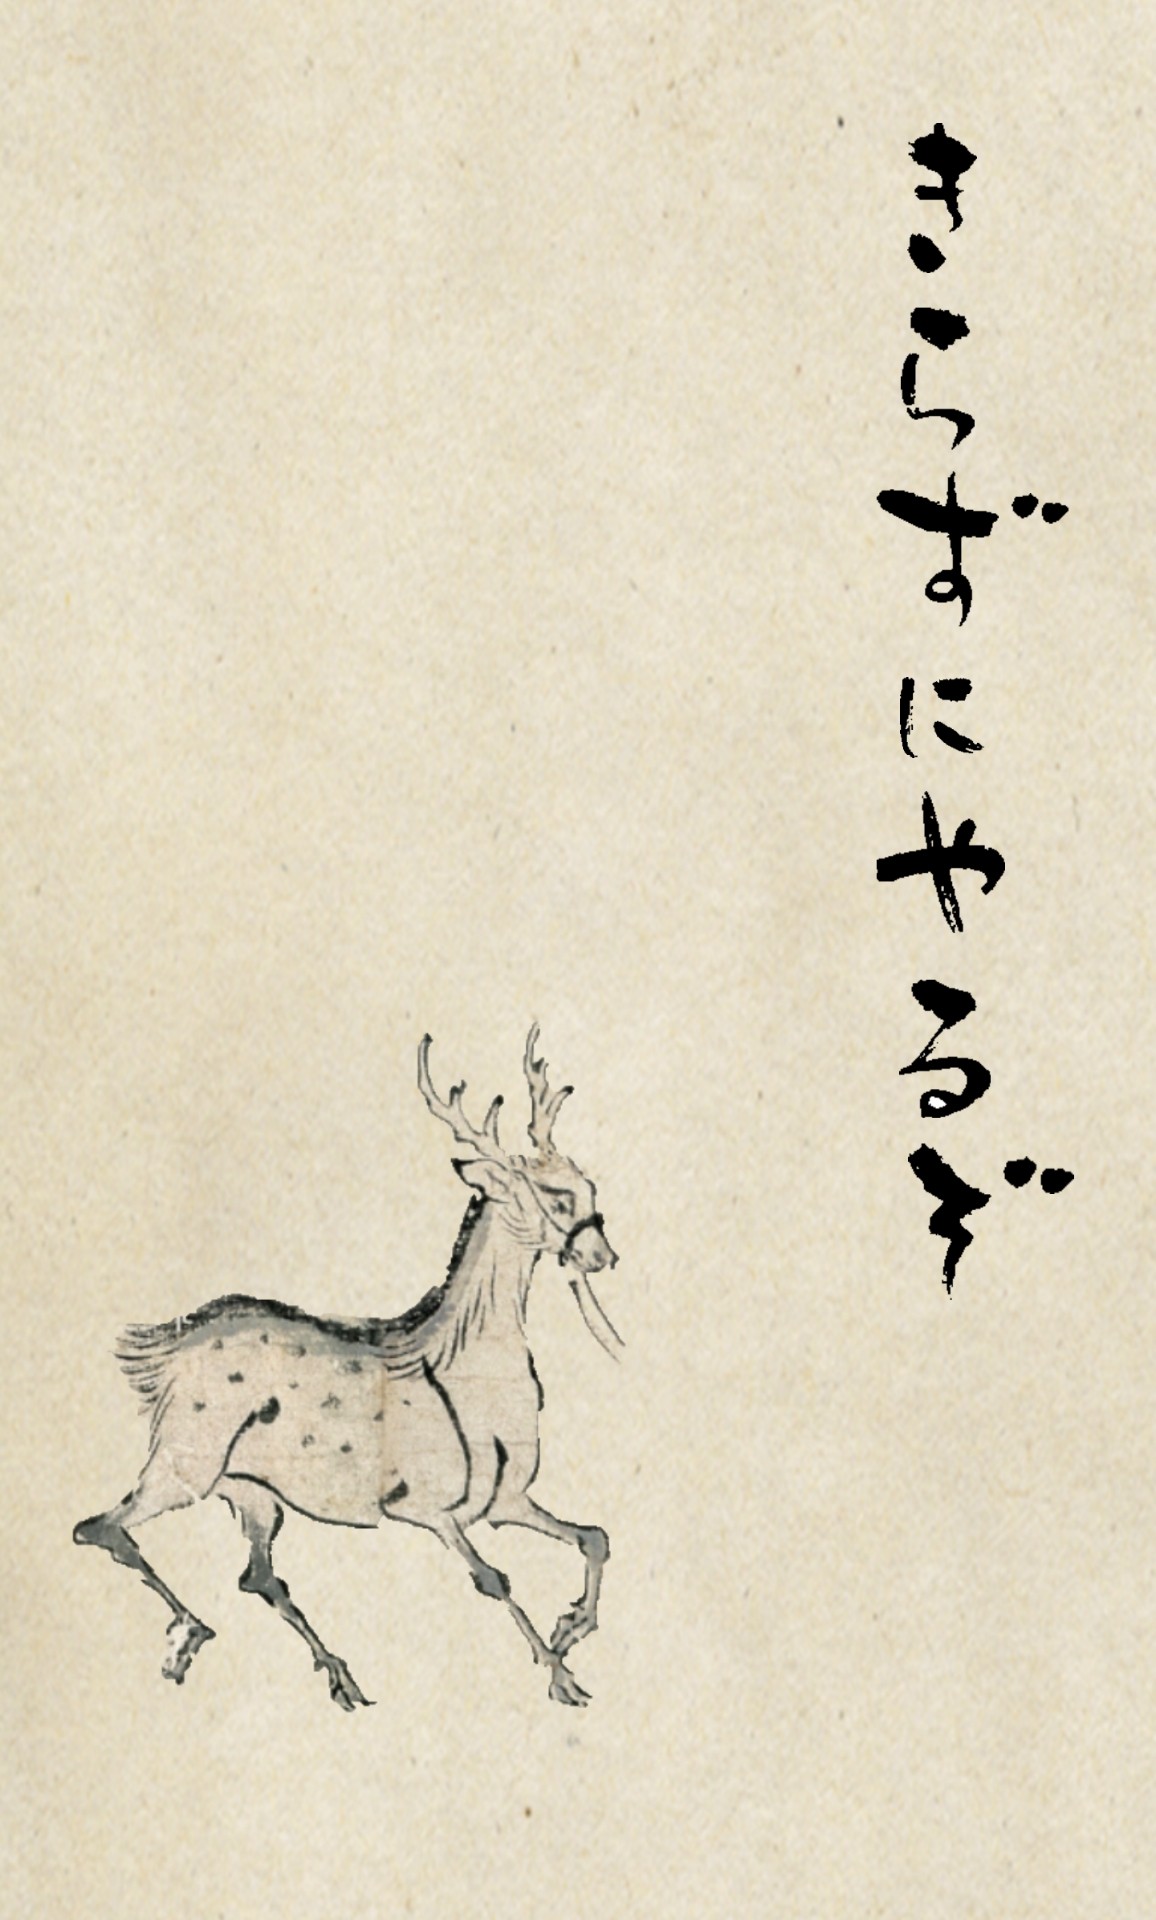 きらずにやるぞ